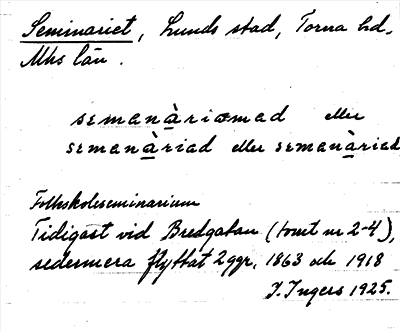 Seminariet, Lunds stad, Torna hd.
Mhs län.
semanàriamad eller
semanàriad eller semanàriad
Folkskoleseminarium
Tidigast vid Bredgatan (tomt nr 2-4),
sedermera flyttat 2 ggr, 1863 och 1918
I. Ingers 1925.